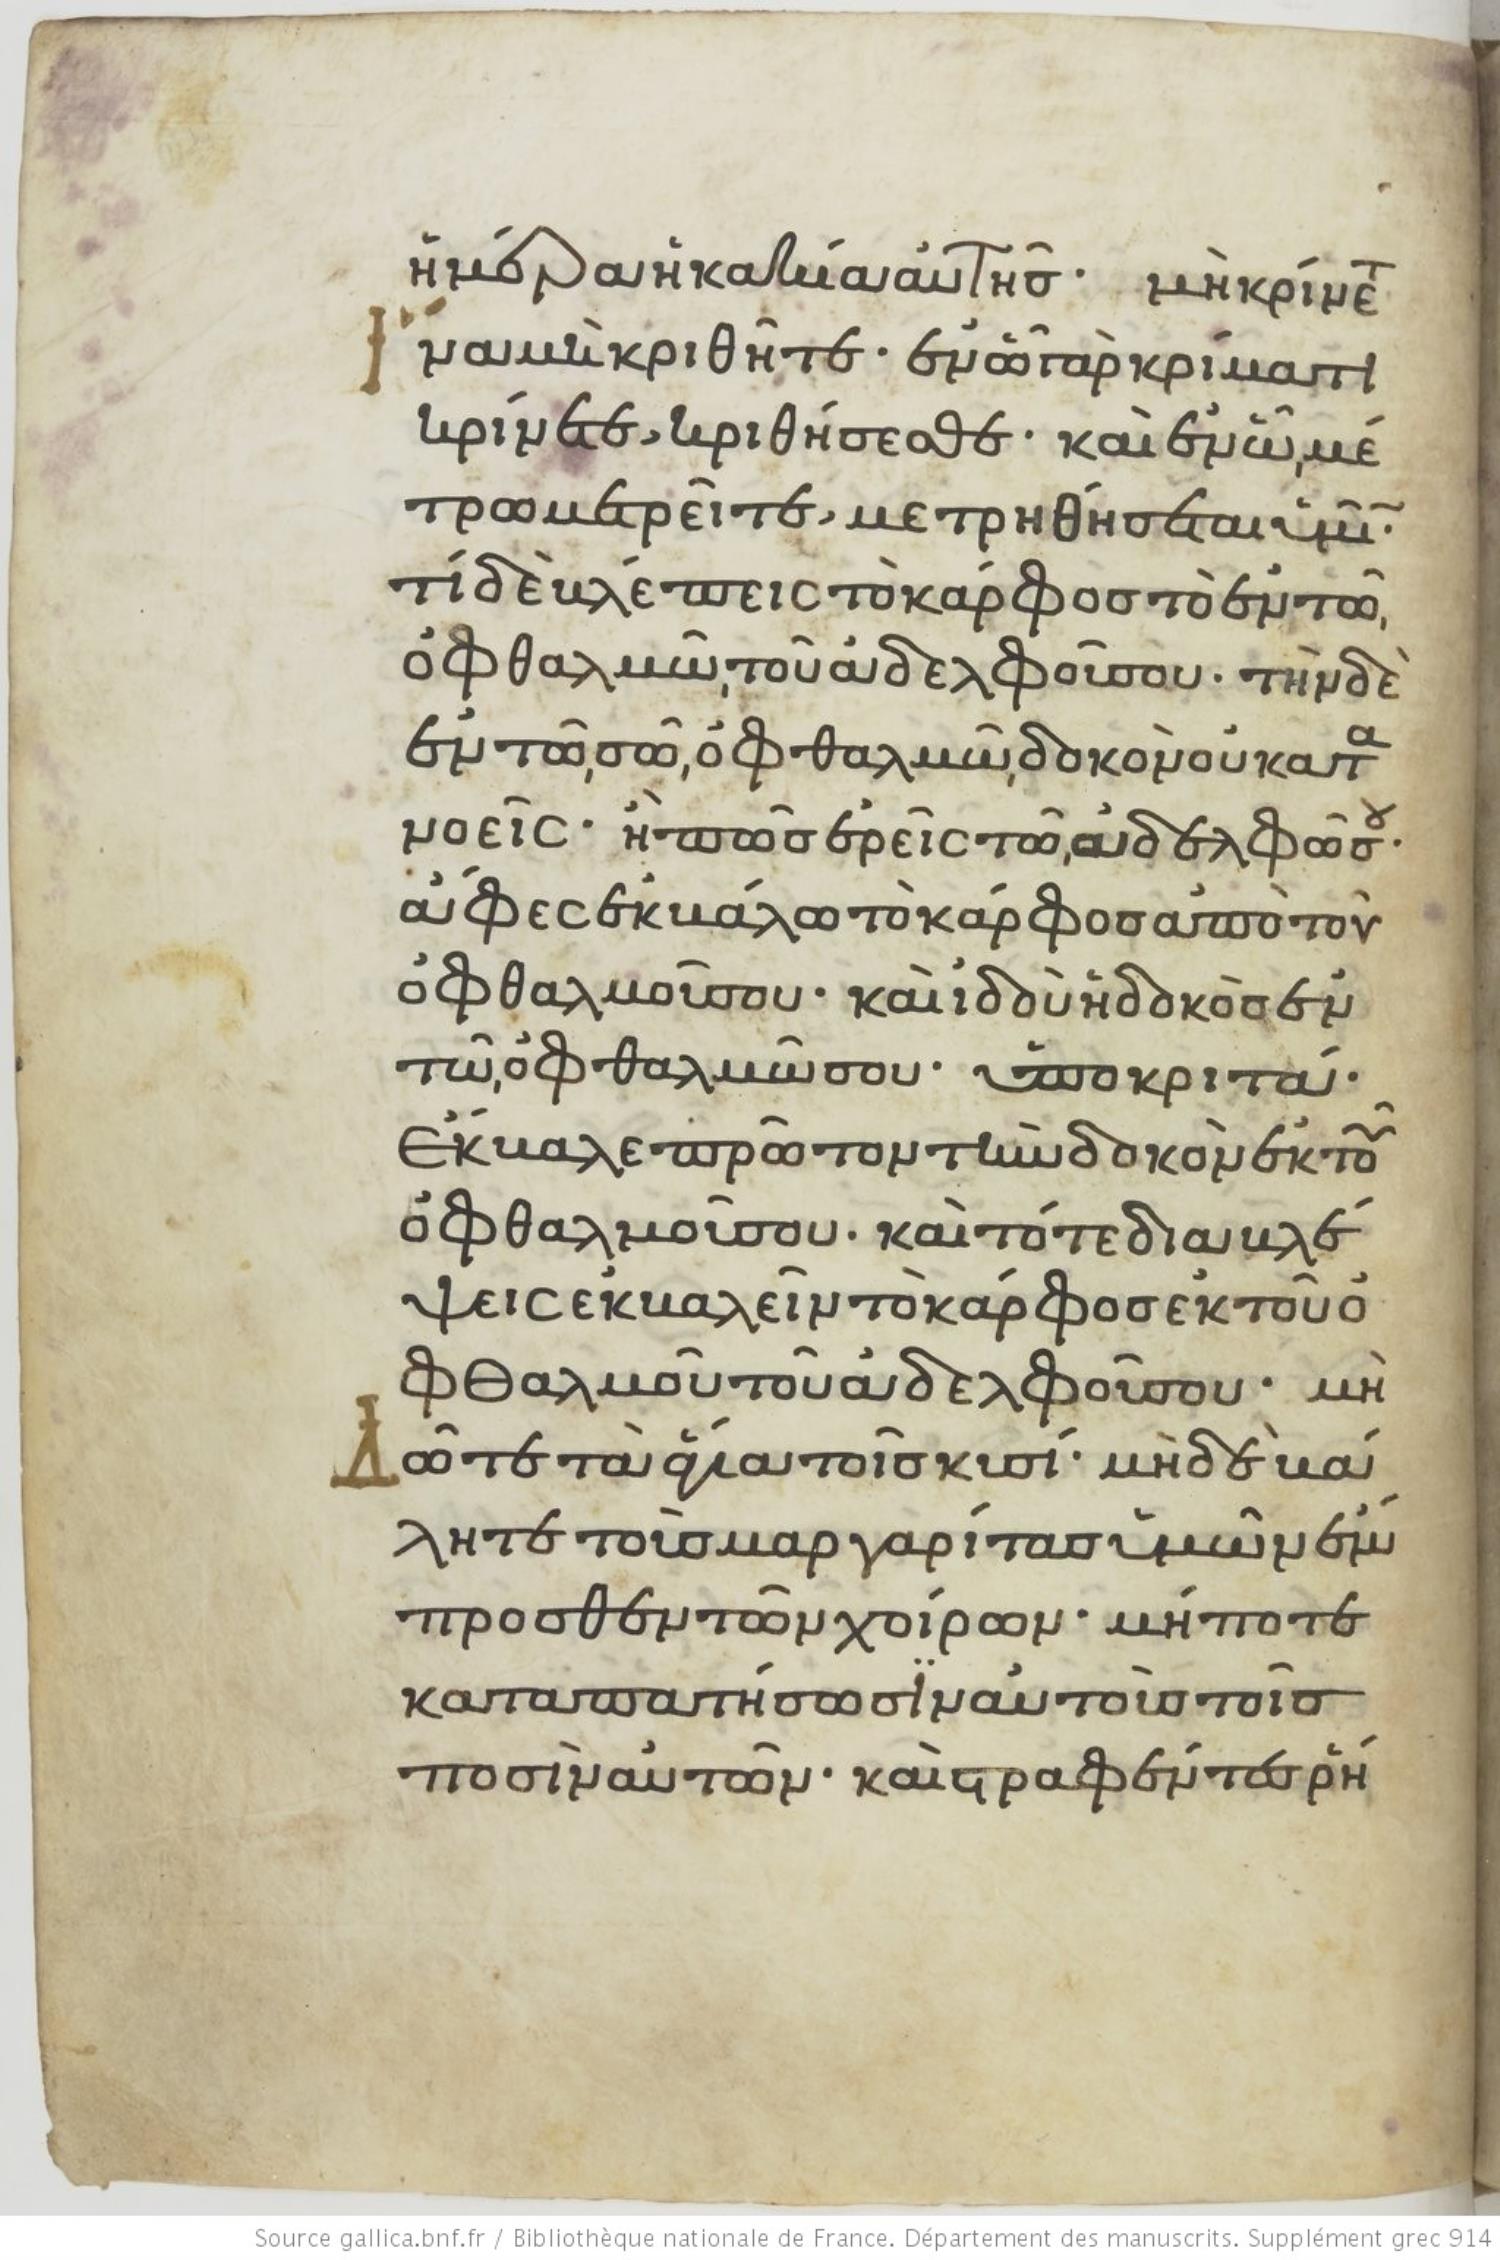 ἡμέρα ἡ κακία αὐτῆς· μὴ κρίνετ
ἵνα μὴ κριθῆτε· ἐν ᾧ γὰρ κρίματι
κρίνετε, κριθήσεσθε· καὶ ἐν ᾧ μέ
τρω μετρεῖτε, μετρηθήσεται ὑμῖ·
τί δὲ βλέπεις τὸ κάρφος τὸ ἐν τῶ
ὀφθαλμῶ τοῦ ἀδελφοῦ σου· τὴν δὲ
ἐν τῶ σῶ ὀφθαλμῶ δοκὸν οὐ κατα
νοεῖς· ἢ πῶς ἐρεῖς τῶ ἀδελφῶ σου·
ἄφες ἐκβάλω τὸ κάρφος ἀπὸ τοῦ
ὀφθαλμοῦ σου· καὶ ἰδοὺ ἡ δοκὸς ἐν
τῶ ὀφθαλμῶ σου· ὑποκριτά·
ἔκβαλε πρῶτον τὴν δοκὸν ἐκ τοῦ
ὀφθαλμοῦ σου· καὶ τότε διαβλέ
ψεις ἐκβαλεῖν τὸ κάρφος ἐκ τοῦ ὀ
φθαλμοῦ τοῦ ἀδελφοῦ σου· μὴ
δῶτε τὰ ἅγια τοῖς κυσί· μηδὲ βά
λητε τοὺς μαργαρίτας ὑμῶν ἔμ
προσθεν τῶν χοίρων· μήποτε
καταπατήσωσϊν αὐτοὺς τοῖς
ποσὶν αὐτῶν· καὶ στραφέντες ῥή
Source gallica.bnf.fr / Bibliothèque nationale de France. Département des manuscrits. Supplément grec 914